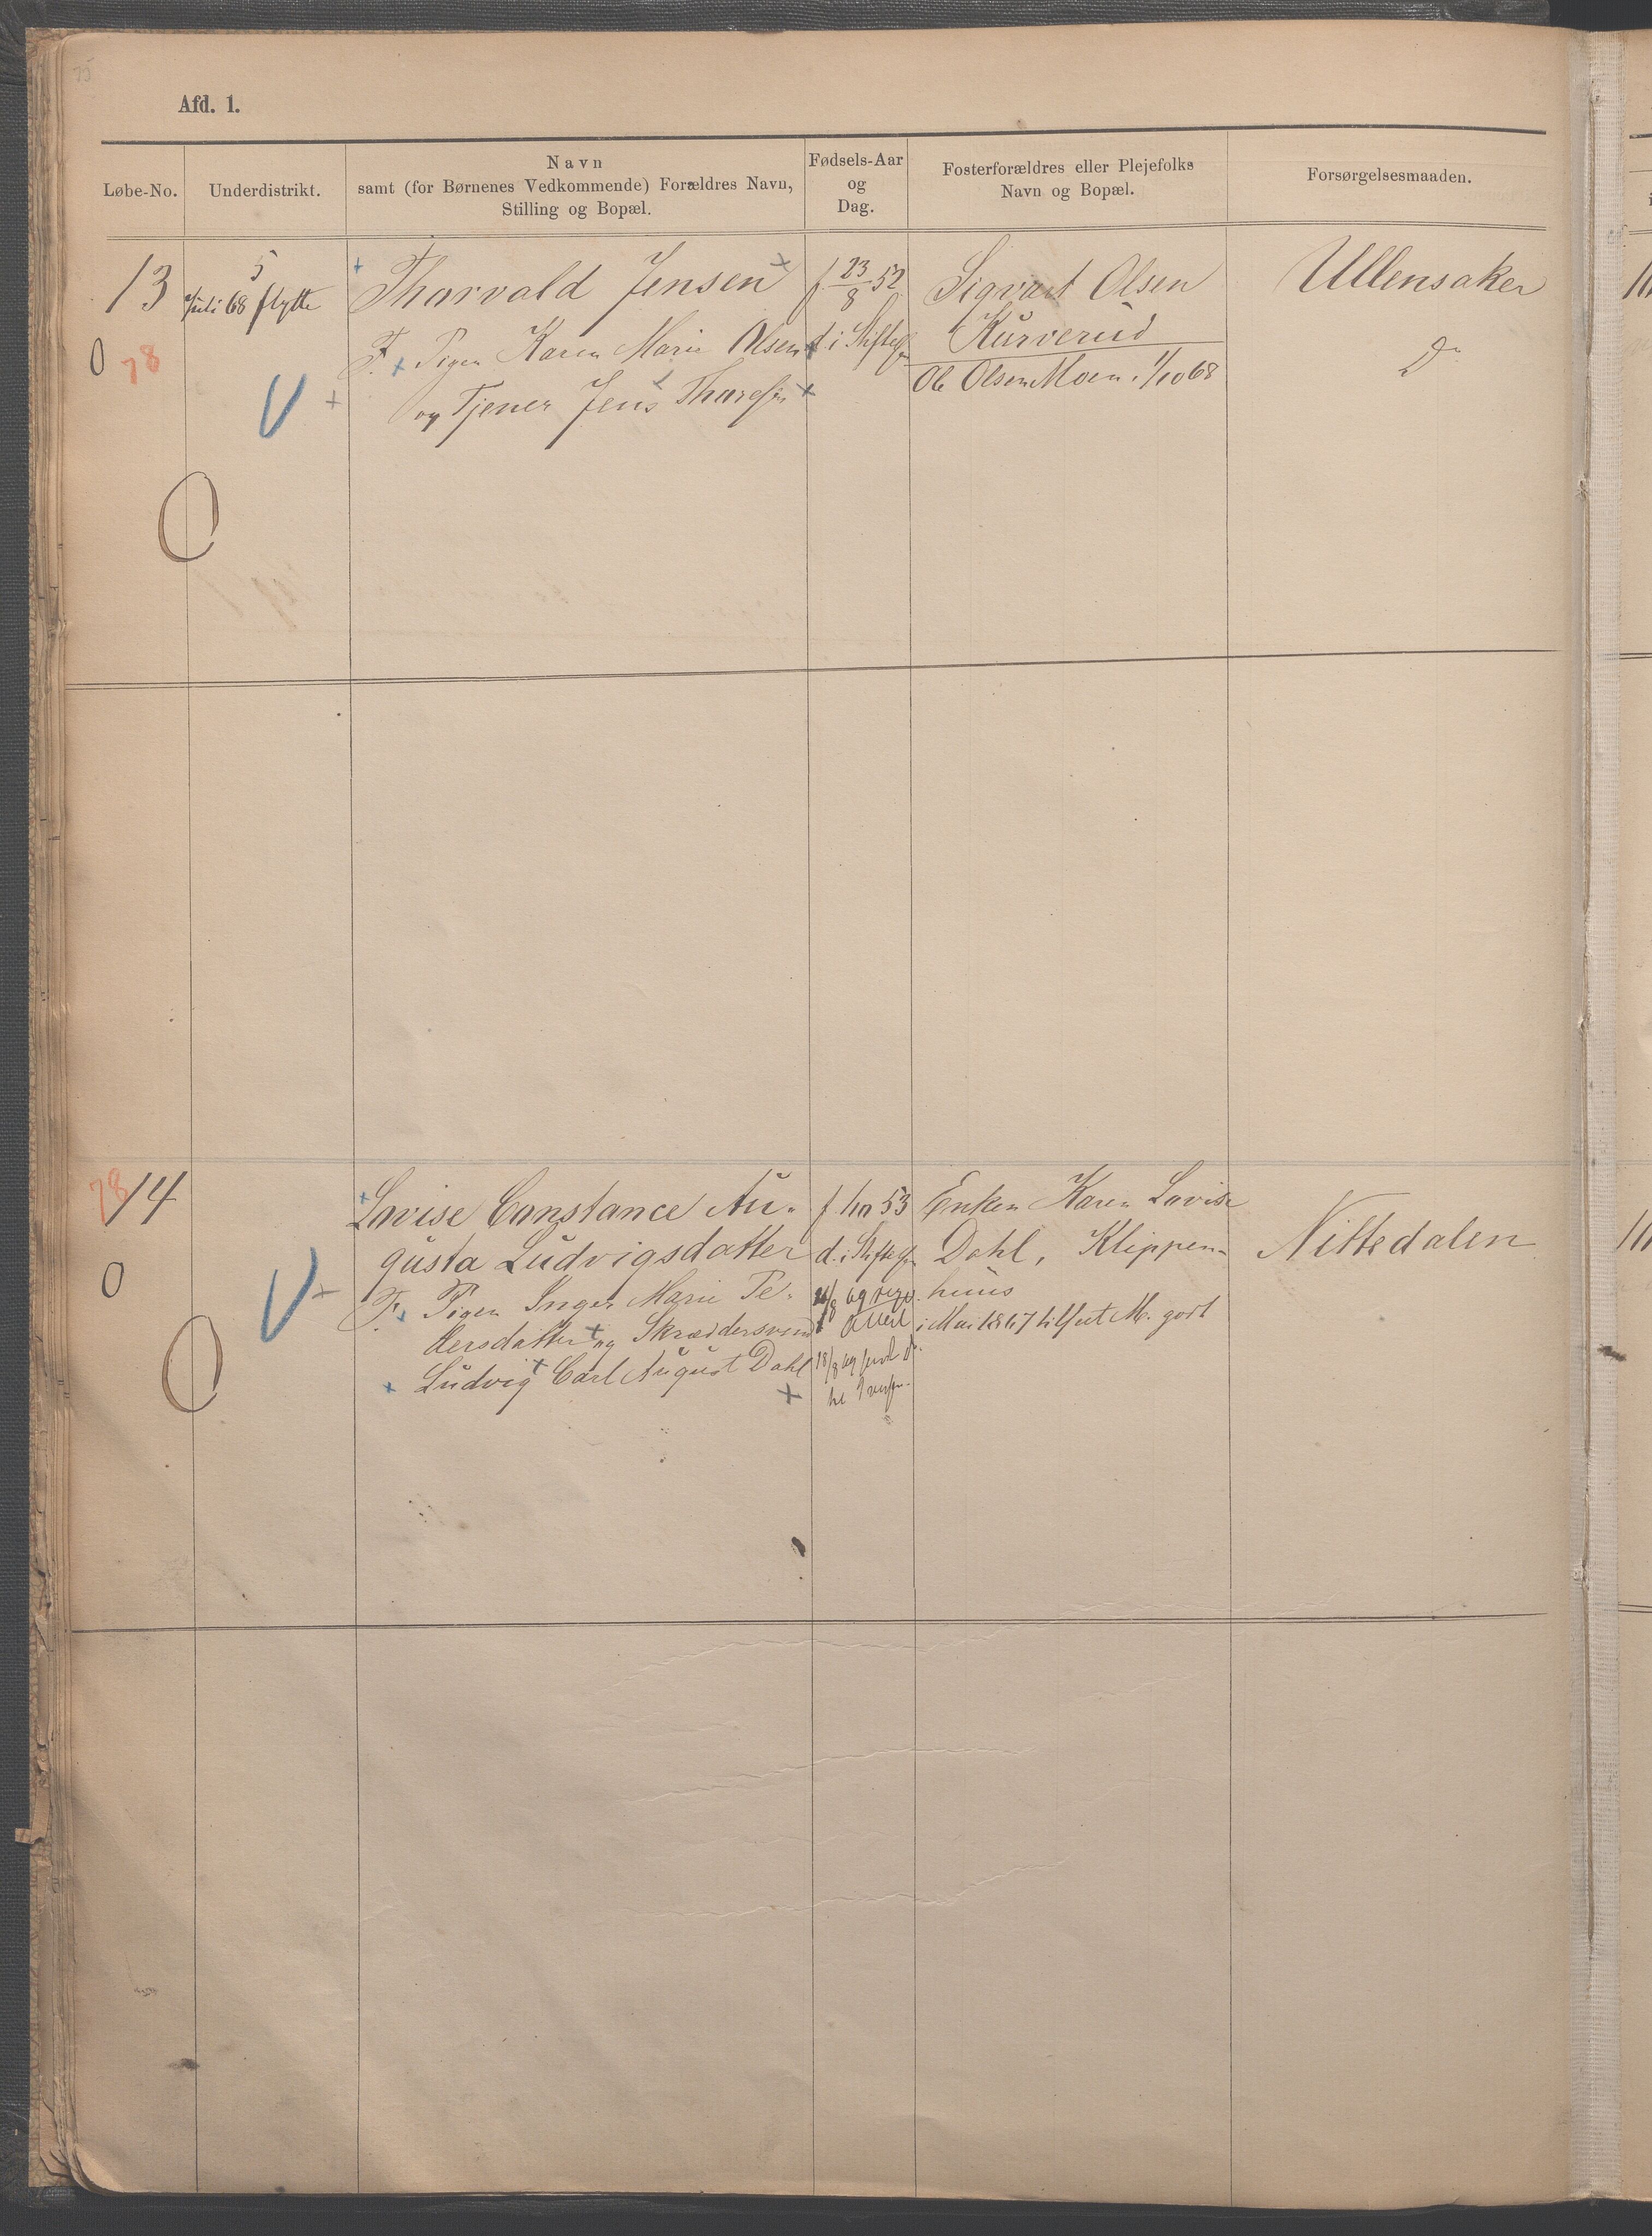 75
Afd. 1.
Løbe-No.
Underdistrikt.
Navn
samt (for Børnenes Vedkommende) Forældres Navn,
Stilling og Bopæl.
Fødsels-Aar
og
Dag.
Fosterforældres eller Plejefolks
Navn og Bopæl.
Forsørgelsesmaaden.
13
0
78
5
Juli 68 flytte
Thorvald Jensen
F. Pigen Karen Marie Olsen
og Tjener Jens
f. 23/8 52
d. i Stiftelsen
Sigvart Olsen
Kurverud
Ole Olsen Moen. 1/10 68
Ullensaker
Do
78
14
0
Lovise Constance Au-
gusta Ludvigsdatter
F. Pigen Inger Marie Pe-
dersdatter og Skræddersvend
Ludvig Carl August Dahl
f. 1/10 53
d. i Stiftelsen
Enken Karen Lovise
Dahl, Klippen-
huus
i Mai 1867
Nittedalen